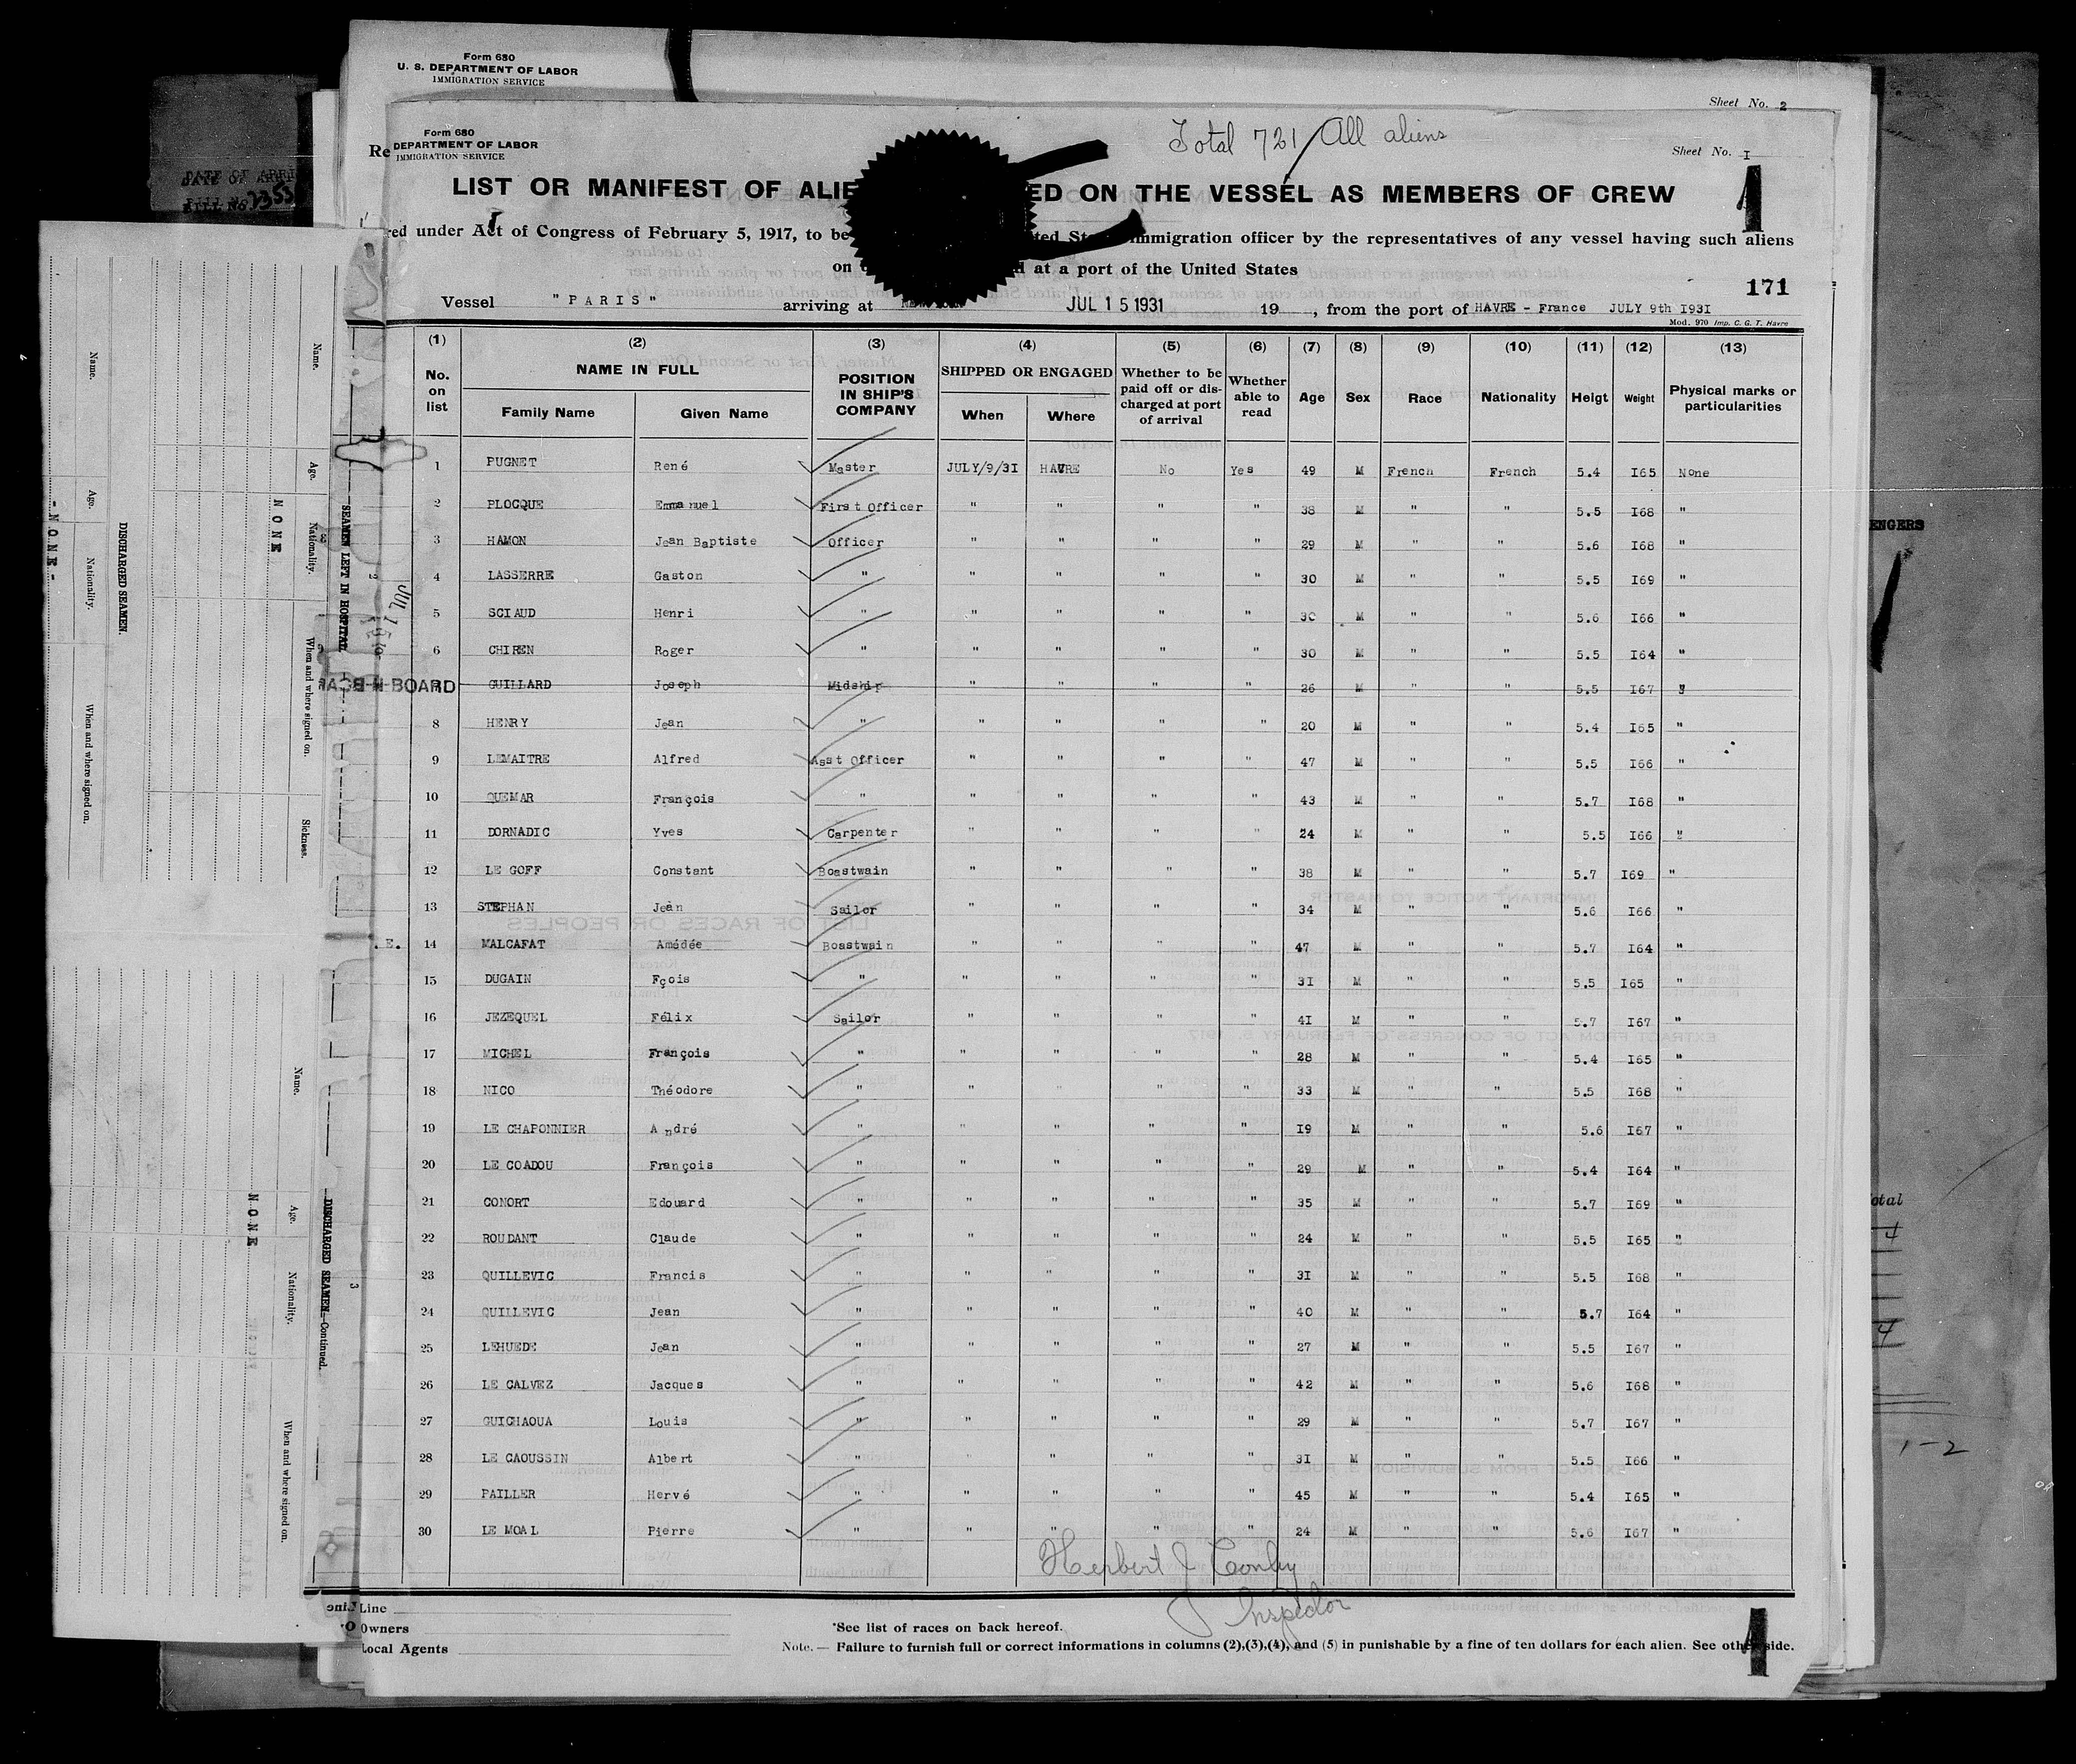 Form 680
U. S. DEPARTMENT OF LABOR
IMMIGRATION SERVICE
Sheet No. 2
Form 680
DEPARTMENT OF LABOR
IMMIGRATION SERVICE
Re
Total 721 / All aliens
Sheet No. I
1
LIST OR MANIFEST OF ALIE ED ON THE VESSEL AS MEMBERS OF CREW
red under Act of Congress of February 5, 1917, to be ted Sta immigration officer by the representatives of any vessel having such aliens
on at a port of the United States
171
Vessel "PARIS" arriving at JUL 15 1931 19 , from the port of HAVRE - France JULY 9th I931
Mod. 970 Imp. C. G. T. Havre
(1) (2) (3) (4) (5) (6) (7) (8) (9) (10) (11) (12) (13)
No. on list NAME IN FULL Family Name Given Name POSITION IN SHIP'S COMPANY SHIPPED OR ENGAGED When Where Whether to be paid off or discharged at port of arrival Whether able to read Age Sex Race Nationality Heigt Weight Physical marks or particularities
1 PUGNET René Master JULY/9/3I HAVRE No Yes 49 M French French 5.4 I65 None
2 PLOCQUE Emmanuel First Officer " " " " 38 M " " 5.5 I68 "
3 HAMON Jean Baptiste Officer " " " " 29 M " " 5.6 I68 "
4 LASSERRE Gaston " " " " " 30 M " " 5.5 I69 "
5 SCIAUD Henri " " " " " 30 M " " 5.6 I66 "
6 CHIREN Roger " " " " " 30 M " " 5.5 I64 "
BOARD GUILLARD Joseph Midship " " " " 26 M " " 5.5 I67 "
8 HENRY Jean " " " " " 20 M " " 5.4 I65 "
9 LEMAITRE Alfred Asst Officer " " " " 47 M " " 5.5 I66 "
10 QUEMAR François " " " " " 43 M " " 5.7 I68 "
11 DORNADIC Yves Carpenter " " " " 24 M " " 5.5 I66 "
12 LE GOFF Constant Boastwain " " " " 38 M " " 5.7 I69 "
13 STEPHAN Jean Sailor " " " " 34 M " " 5.6 I66 "
. E. 14 MALCAFAT Amédée Boastwain " " " " 47 M " " 5.7 I64 "
15 DUGAIN Fçois " " " " " 3I M " " 5.5 I65 "
16 JEZEQUEL Félix Sailor " " " " 4I M " " 5.7 I67 "
17 MICHEL François " " " " " 28 M " " 5.4 I65 "
18 NICO Théodore " " " " " 33 M " " 5.5 I68 "
19 LE CHAPONNIER André " " " " " I9 M " " 5.6 I67 "
20 LE COADOU François " " " " " 29 M " " 5.4 I64 "
21 CONORT Edouard " " " " " 35 M " " 5.7 I69 "
22 ROUDANT Claude " " " " " 24 M " " 5.5 I65 "
23 QUILLEVIC Francis " " " " " 3I M " " 5.5 I68 "
24 QUILLEVIC Jean " " " " " 40 M " " 5.7 I64 "
25 LEHUEDE Jean " " " " " 27 M " " 5.5 I67 "
26 LE CALVEZ Jacques " " " " " 42 M " " 5.6 I68 "
27 GUICHAOUA Louis " " " " " 29 M " " 5.7 I67 "
28 LE CAOUSSIN Albert " " " " " 3I M " " 5.5 I66 "
29 PAILLER Hervé " " " " " 45 M " " 5.4 I65 "
30 LE MOAL Pierre " " " " " 24 M " " 5.6 I67 "
Herbert J Conly
Inspector
Line
Owners
Local Agents
*See list of races on back hereof.
Note. — Failure to furnish full or correct informations in columns (2),(3),(4), and (5) in punishable by a fine of ten dollars for each alien. See other side.
1
SEAMEN LEFT IN HOSPITAL
Name. Age. Nationality. When and where signed on. Sickness.
NONE
DISCHARGED SEAMEN.
Name. Age. Nationality. When and where signed on.
- NONE -
DISCHARGED SEAMEN—Continued.
Name. Age. Nationality. When and where signed on.
NONE
3
ENGERS
otal
4
4
1-2